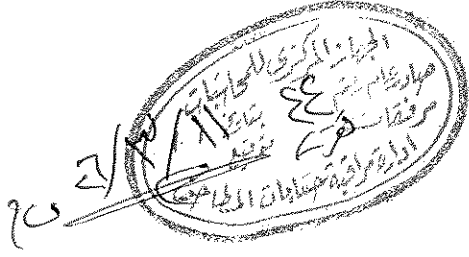 الجهاز المركزى للمحاسبات
صادر عام رقم ٤٤
بتاريخ ١١/٣/
مرفقات توقيع
ادارة مراقبة حسابات المطاحن